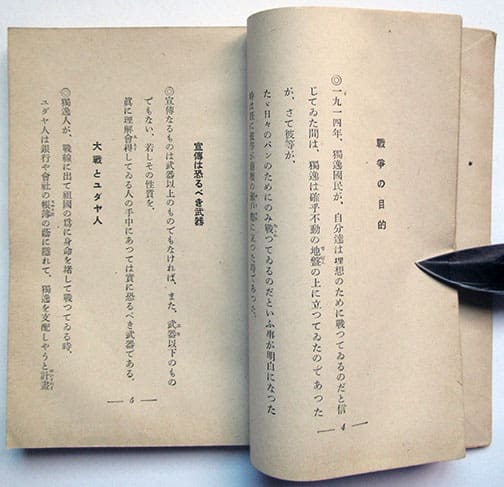 戰爭の目的
◎一九一四年、獨逸國民が、自分達は理想のために戰つてゐるのだと信
じてゐた間は、獨逸は確乎不動の地盤の上に立つてゐたのであつた
が、さて彼等が、
たゞ日々のパンのためにのみ戰つてゐるのだといふ事が明白になつた
時は既に彼等が
に立つた時であつた。
— 4 —
宣傳は恐るべき武器
◎宣傳なるものは武器以上のものでもなければ、また、武器以下のもの
でもない、若しその性質を、
眞に理解會得してゐる人の手中にあつては實に恐るべき武器である。
大戰とユダヤ人
◎獨逸人が、戰線に出て祖國の爲に身命を堵して戰つてゐる時、
ユダヤ人は銀行や會社の帳簿の蔭に隱れて、獨逸を支配しやうと計畫
— 5 —